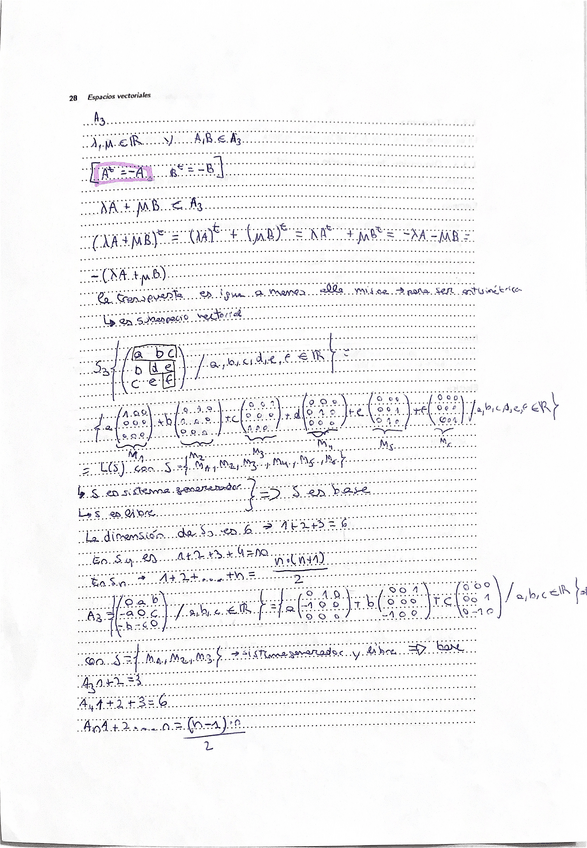 28 Espacios vectoriales
A₃
λ, μ ∈ ℝ y A, B ∈ A₃
[Aᵗ = -A Bᵗ = -B]
λA + μB ∈ A₃
(λA + μB)ᵗ = (λA)ᵗ + (μB)ᵗ = λAᵗ + μBᵗ = -λA - μB =
-(λA + μB)
la transpuesta es igual a menos ella misma → para ser antisimétrica
↳ es subespacio vectorial
S₃ {(a b c / b d e / c e f) / a, b, c, d, e, f ∈ ℝ} =
{a (1 0 0 / 0 0 0 / 0 0 0) + b (0 1 0 / 1 0 0 / 0 0 0) + c (0 0 1 / 0 0 0 / 1 0 0) + d (0 0 0 / 0 1 0 / 0 0 0) + e (0 0 0 / 0 0 1 / 0 1 0) + f (0 0 0 / 0 0 0 / 0 0 1) / a, b, c, d, e, f ∈ ℝ}
M₁ M₂ M₃ M₄ M₅ M₆
= L(S) con S = {M₁, M₂, M₃, M₄, M₅, M₆}
↳ S es sistema generador } => S es base
↳ S es libre
La dimensión de S₃ es 6 → 1+2+3=6
En S₄ es 1+2+3+4=10
En Sn → 1+2+.....+n = n·(n+1)/2
A₃ = {(0 a b / -a 0 c / -b -c 0) / a, b, c ∈ ℝ} = {a (0 1 0 / -1 0 0 / 0 0 0) + b (0 0 1 / 0 0 0 / -1 0 0) + c (0 0 0 / 0 0 1 / 0 -1 0) / a, b, c ∈ ℝ}
con S = {M₁, M₂, M₃} → sistema generador y libre => base
A₃ 1+2=3
A₄ 1+2+3=6
An 1+2.....n = (n-1)·n/2